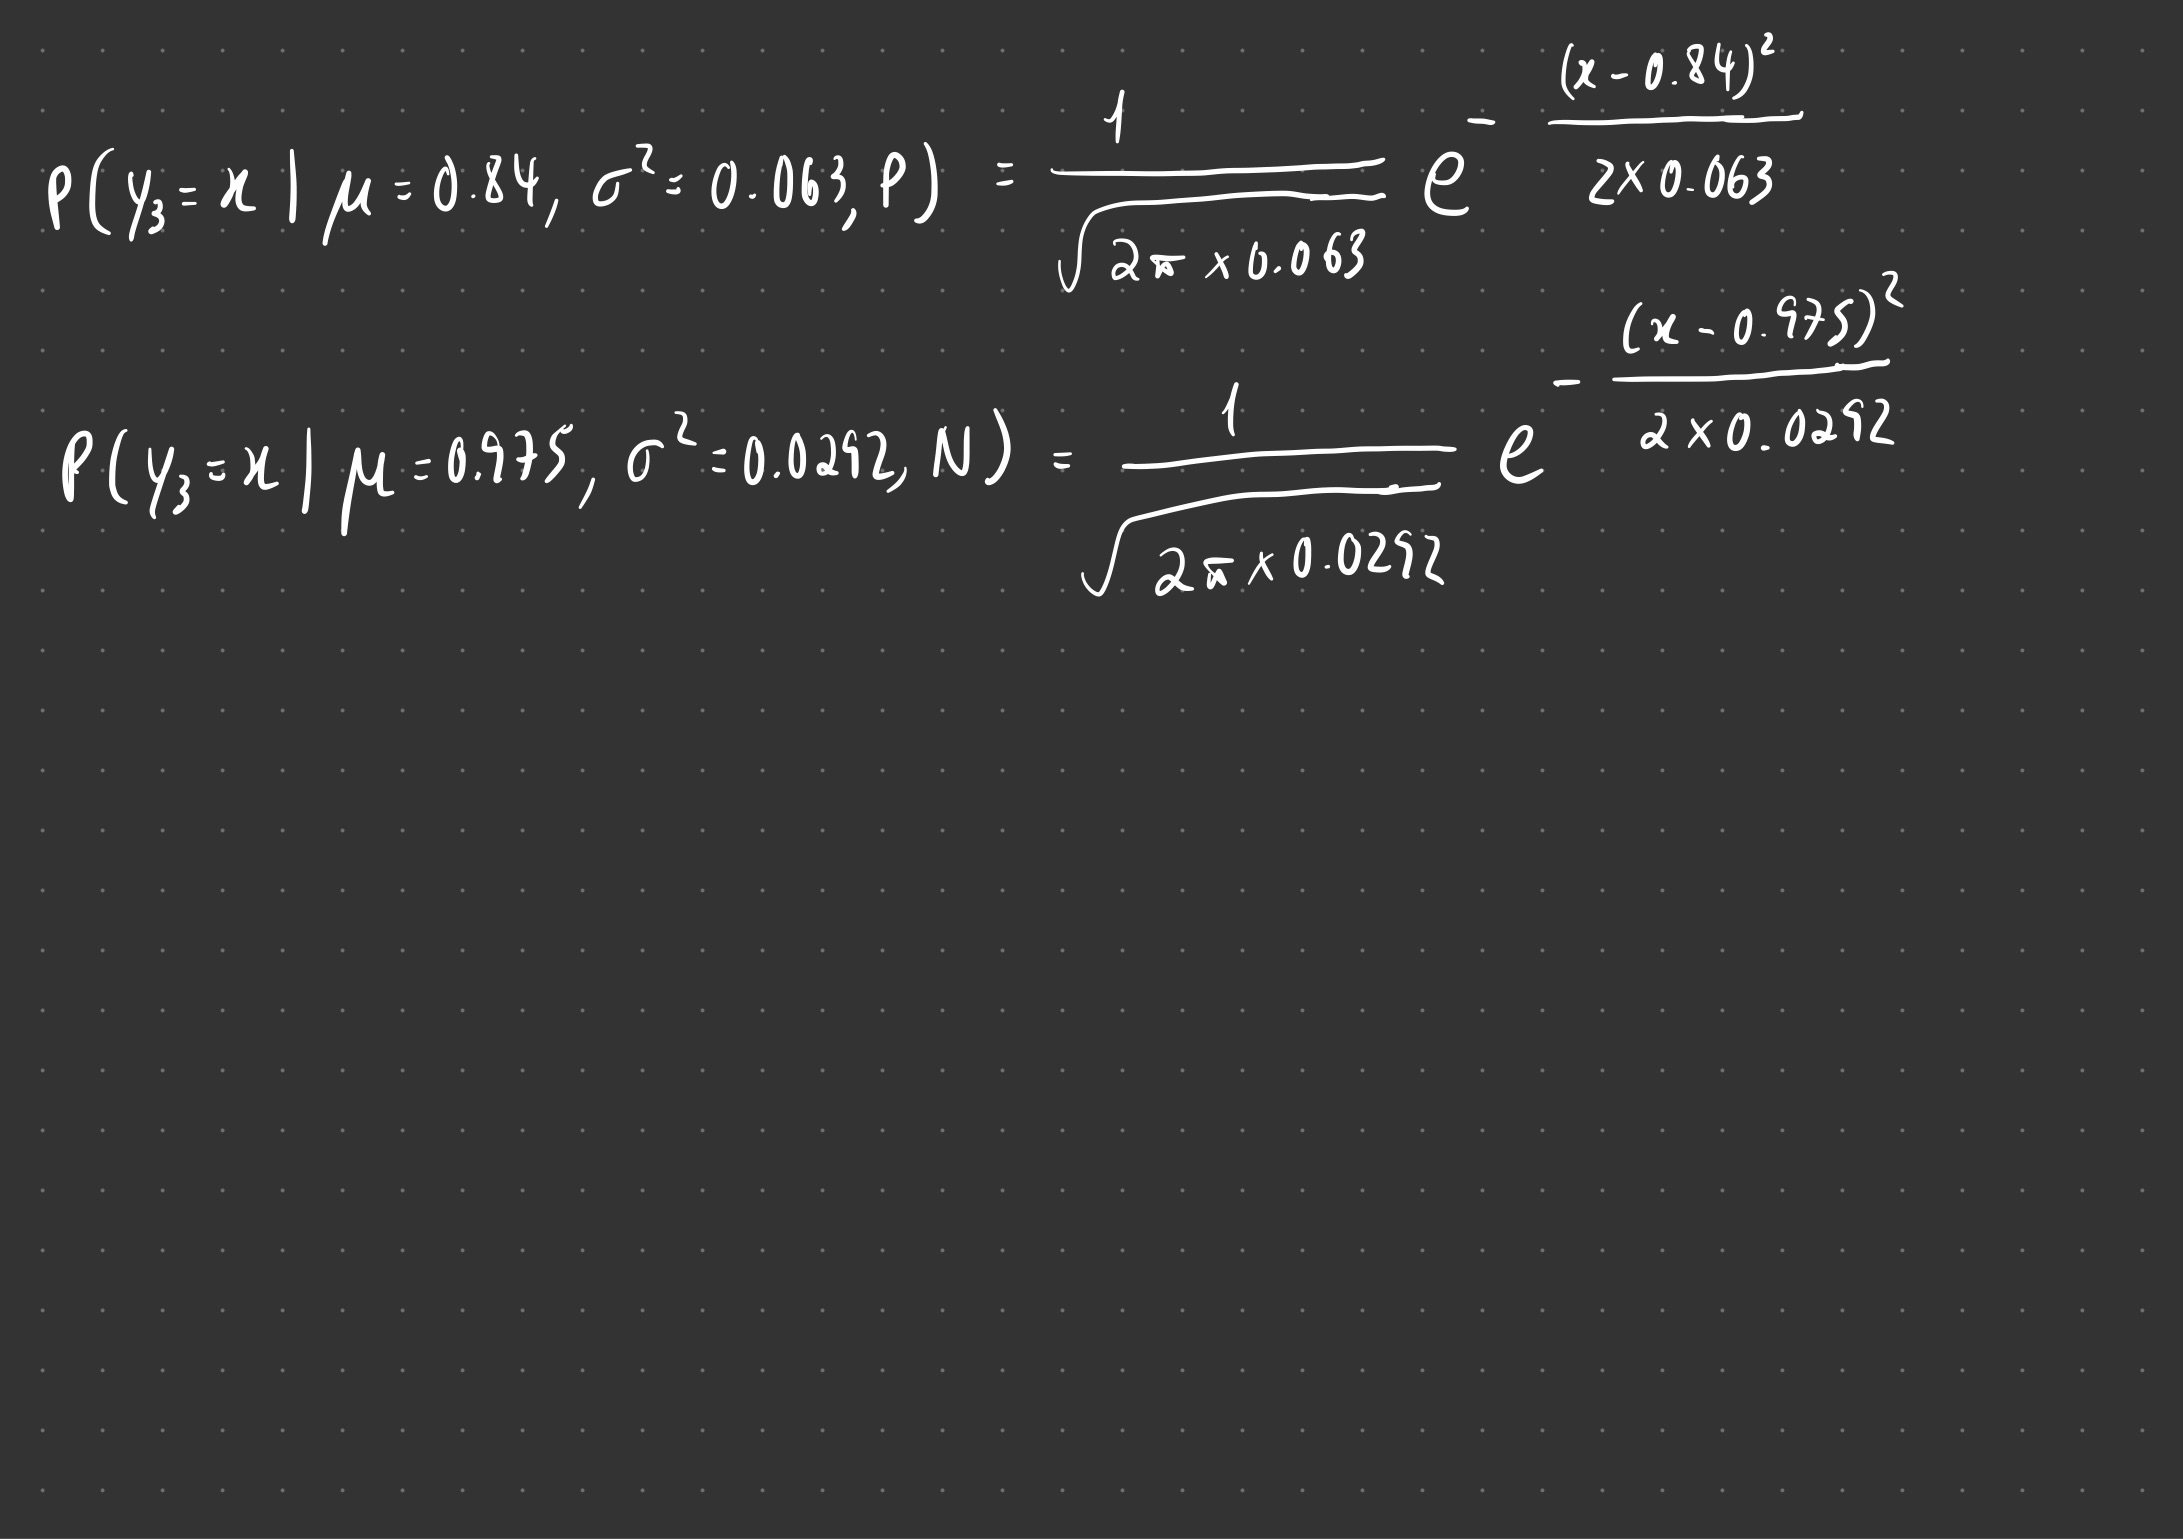 P(y₃ = x | μ = 0.84, σ² = 0.063, P) = 1 / √(2π × 0.063) e^(-(x - 0.84)² / (2 × 0.063))
P(y₃ = x | μ = 0.975, σ² = 0.0292, N) = 1 / √(2π × 0.0292) e^(-(x - 0.975)² / (2 × 0.0292))